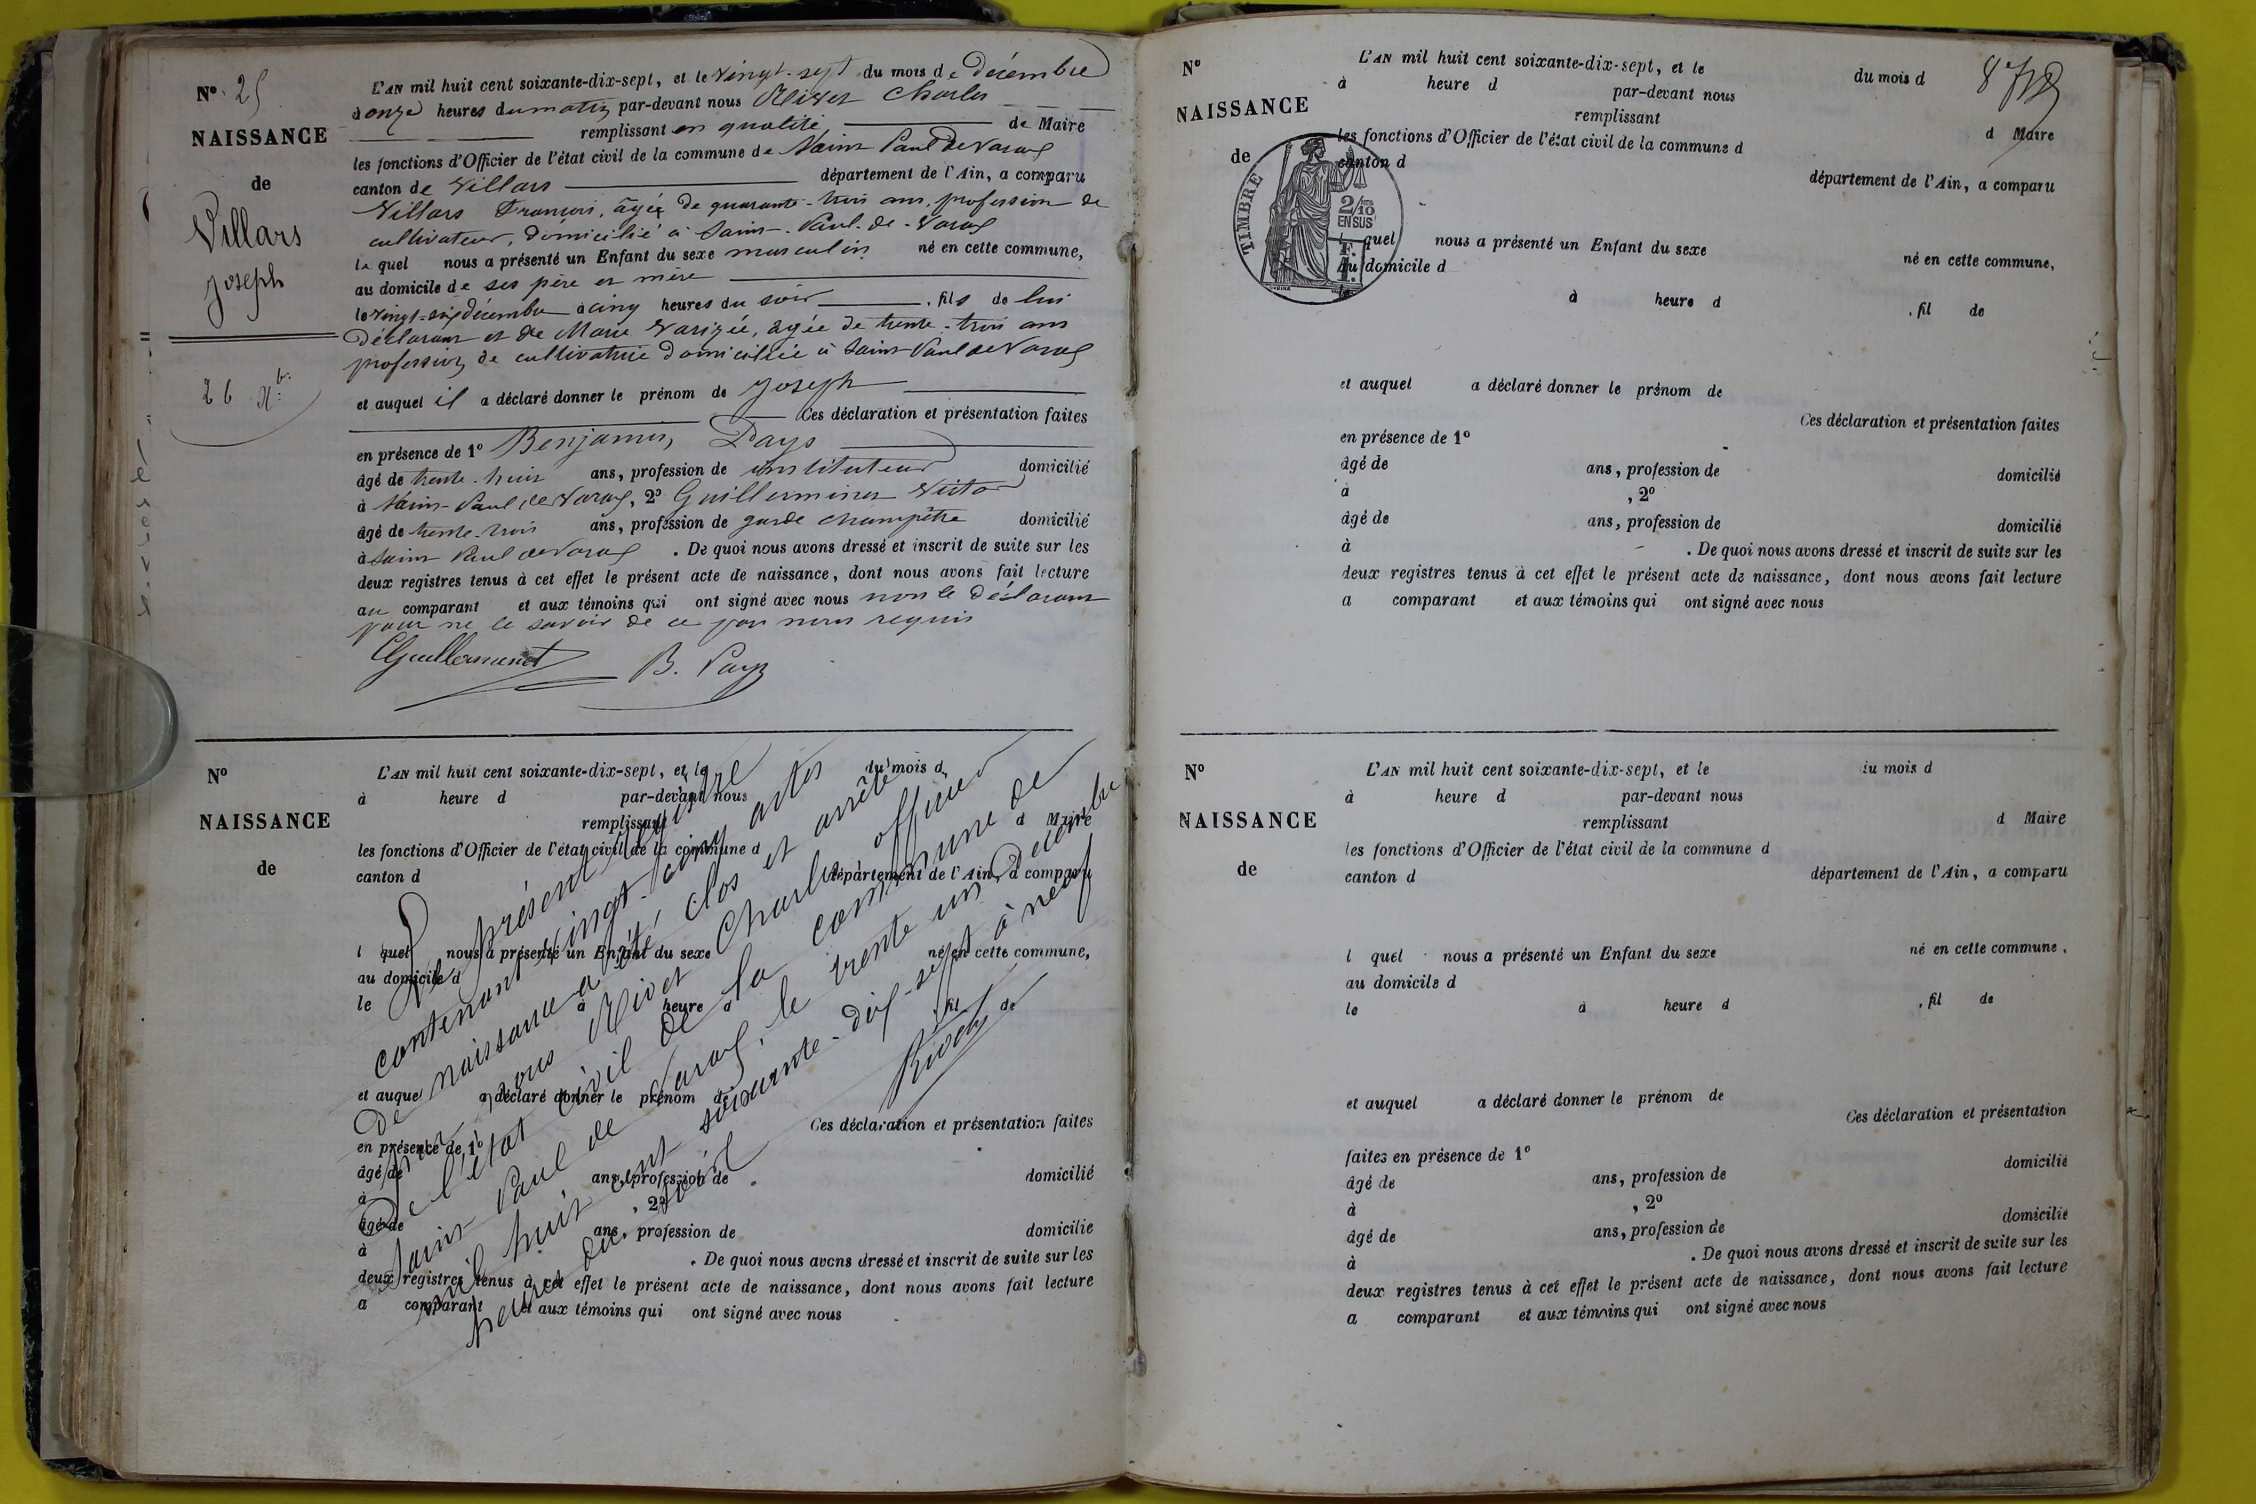 N° 25
NAISSANCE
de
Villars
Joseph
26 Xbre
L'AN mil huit cent soixante-dix-sept, et le vingt-sept du mois de décembre
à onze heures du matin par-devant nous Rivet Charles
remplissant en qualité de Maire
les fonctions d'Officier de l'état civil de la commune de Saint Paul De Varax
canton de Villars département de l'Ain, a comparu
Villars François, âgé de quarante-trois ans, profession de
cultivateur, domicilié à Saint-Paul-de-Varax
lequel nous a présenté un Enfant du sexe masculin né en cette commune,
au domicile de ses père et mère
le vingt-six décembre à cinq heures du soir, fils de lui
déclarant et de Marie Varizée, agée de trente-trois ans
profession de cultivatrice domiciliée à Saint Paul de Varax
et auquel il a déclaré donner le prénom de Joseph
Ces déclaration et présentation faites
en présence de 1° Benjamin, Pays
âgé de trente-huit ans, profession de instituteur domicilié
à Saint-Paul de Varax, 2° Guilleminet Victor
âgé de trente-trois ans, profession de garde champêtre domicilié
à Saint Paul de Varax. De quoi nous avons dressé et inscrit de suite sur les
deux registres tenus à cet effet le présent acte de naissance, dont nous avons fait lecture
au comparant et aux témoins qui ont signé avec nous non le déclarant
pour ne le savoir de ce par nous requis
Guilleminet B. Pays
N°
NAISSANCE
de
L'AN mil huit cent soixante-dix-sept, et le du mois d
à heure d par-devant nous
remplissant d Maire
les fonctions d'Officier de l'état civil de la commune d
canton d département de l'Ain, a comparu
l quel nous a présenté un Enfant du sexe né en cette commune,
au domicile d
le à heure d , fil de
et auquel a déclaré donner le prénom de
Ces déclaration et présentation faites
en présence de 1°
âgé de ans, profession de domicilié
à , 2°
âgé de ans, profession de domicilié
à . De quoi nous avons dressé et inscrit de suite sur les
deux registres tenus à cet effet le présent acte de naissance, dont nous avons fait lecture
a comparant et aux témoins qui ont signé avec nous
Le présent registre
contenant vingt-cinq actes
De naissance a été clos et arrêté
par nous Rivet Charles officier
De l'état civil de la commune de
Saint Paul de Varax, le trente un Décembre
mil huit cent soixante-dix-sept à neuf
heures du soir
Rivet
N°
NAISSANCE
de
TIMBRE
2/10
EN SUS
878
L'AN mil huit cent soixante-dix-sept, et le du mois d
à heure d par-devant nous
remplissant d Maire
les fonctions d'Officier de l'état civil de la commune d
canton d
département de l'Ain, a comparu
l quel nous a présenté un Enfant du sexe né en cette commune,
au domicile d
le à heure d , fil de
et auquel a déclaré donner le prénom de
Ces déclaration et présentation faites
en présence de 1°
âgé de ans, profession de domicilié
à , 2°
âgé de ans, profession de domicilié
à . De quoi nous avons dressé et inscrit de suite sur les
deux registres tenus à cet effet le présent acte de naissance, dont nous avons fait lecture
a comparant et aux témoins qui ont signé avec nous
N°
NAISSANCE
de
L'AN mil huit cent soixante-dix-sept, et le du mois d
à heure d par-devant nous
remplissant d Maire
les fonctions d'Officier de l'état civil de la commune d
canton d département de l'Ain, a comparu
l quel nous a présenté un Enfant du sexe né en cette commune,
au domicile d
le à heure d , fil de
et auquel a déclaré donner le prénom de
Ces déclaration et présentation
faites en présence de 1°
âgé de ans, profession de domicilié
à , 2°
âgé de ans, profession de domicilié
à . De quoi nous avons dressé et inscrit de suite sur les
deux registres tenus à cet effet le présent acte de naissance, dont nous avons fait lecture
a comparant et aux témoins qui ont signé avec nous